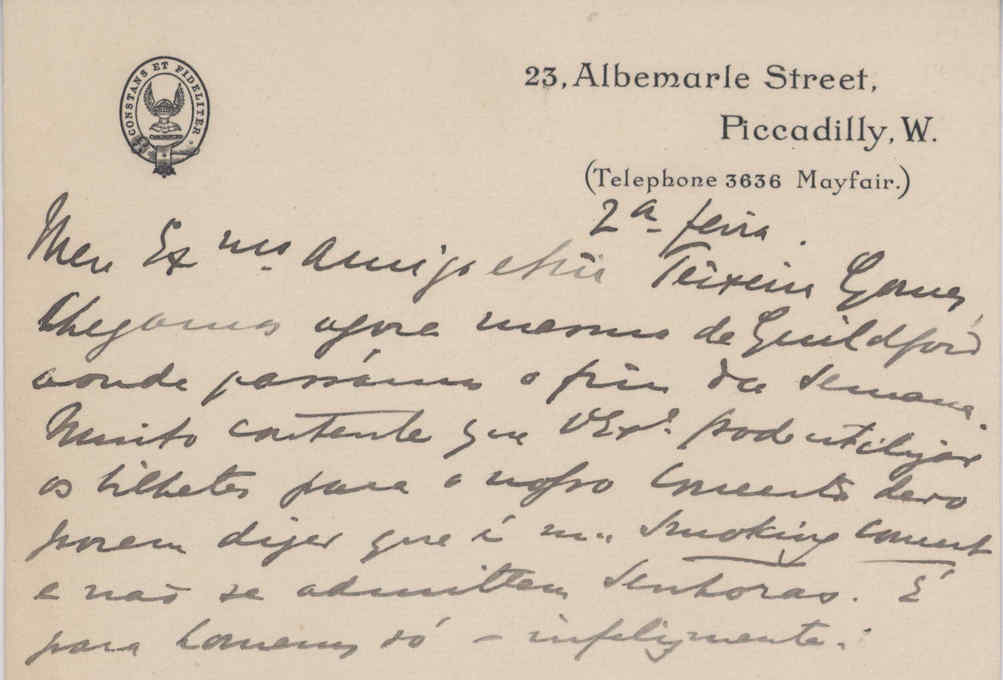 CONSTANS ET FIDELITER
23, Albemarle Street,
Piccadilly, W.
(Telephone 3636 Mayfair.)
2ª feira.
Meu Exmo Amigo e Teixeira Gomes,
Chegamos agora mesmo de Guildford
aonde passámos o fim da semana.
Muito contente que VExª. pode utilizar
os bilhetes para o nosso Concerto devo
porem dizer que é um Smoking Concert
e não se admittem Senhoras. É
para homens só – infelizmente.